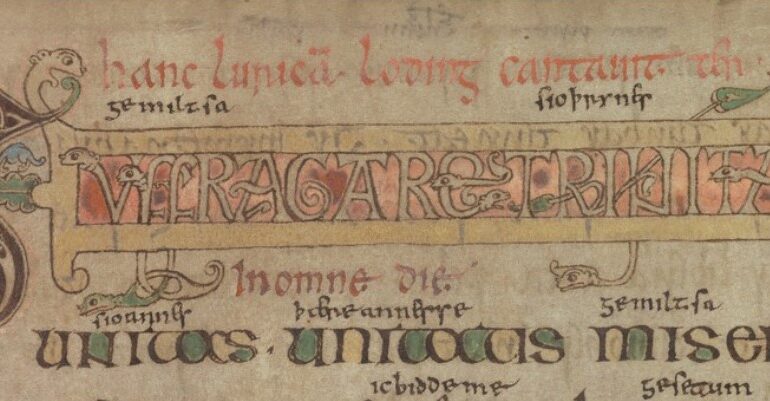 hanc luricā· loding cantauit. ter·
gemiltsa sio þrynis
UFFRAGARE TRINITA
In omne die·
sio annis þere annesse gemiltsa
unitas· unitatis mise
ic bidde me gesetum